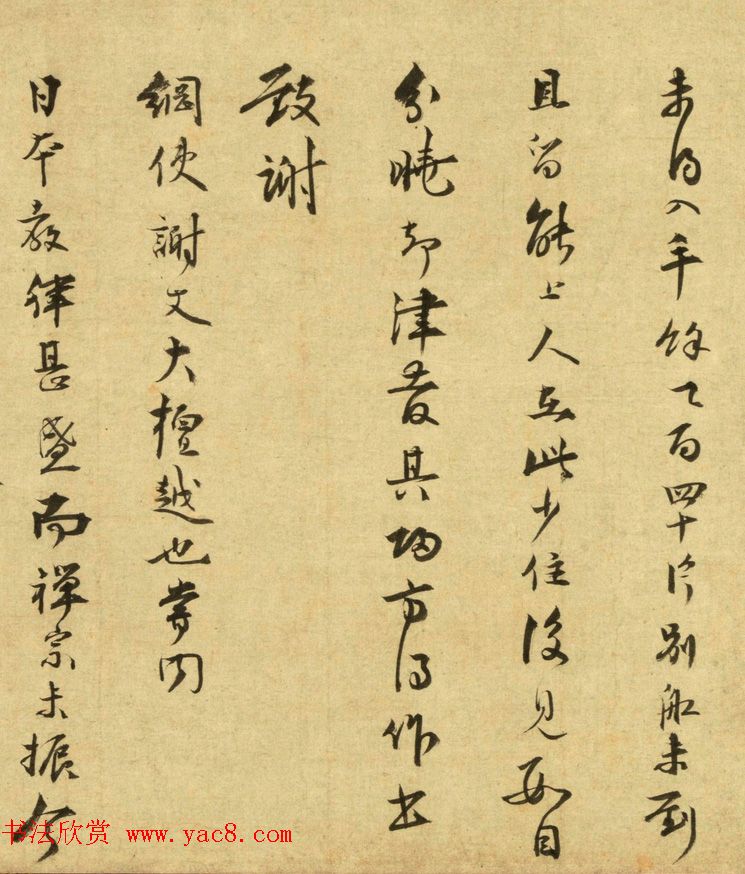 未得入手餘百四十片別船未到
且留能上人在此少住後見數目
分曉却津發其歸方得作書
致謝
綱使謝丈大檀越也嘗聞
日本教律甚盛而禪宗未振今
书法欣赏 www.yac8.com